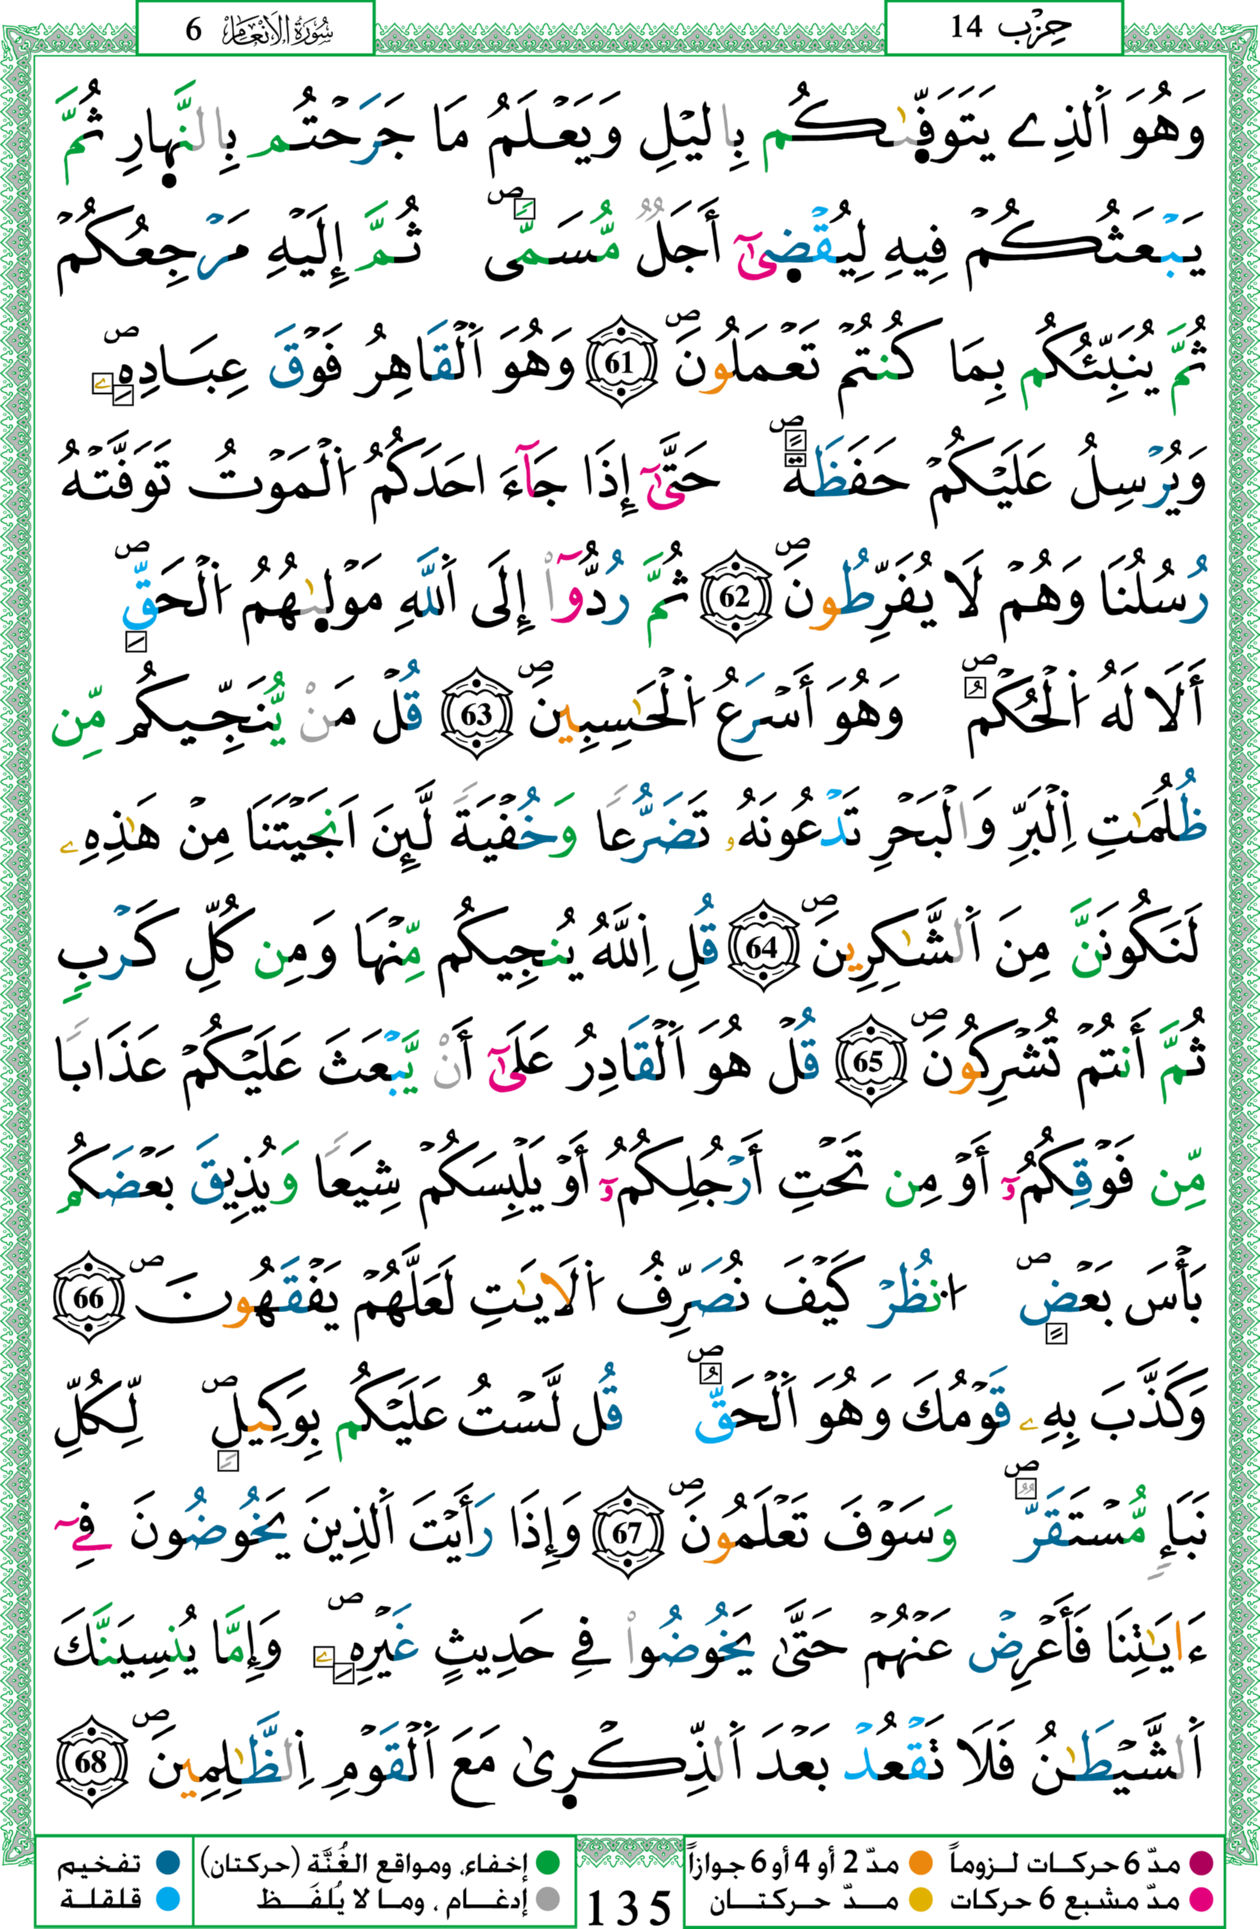 سُورَةُ الأَنْعَام 6
حِزْب 14
وَهُوَ اَ۬لذِے يَتَوَفّ۪يٰكُم بِاليْلِ وَيَعْلَمُ مَا جَرَحْتُم بِالنَّه۪ارِ ثُمَّ
يَبْعَثُكُمْ فِيهِ لِيُقْض۪يٰٓ أَجَلٞ مُّسَمّىٗ ۖ ثُمَّ إِلَيْهِ مَرْجِعُكُمْ
ثُمَّ يُنَبِّئُكُم بِمَا كُنتُمْ تَعْمَلُونَ ۖ 61 وَهُوَ اَ۬لْقَاهِرُ فَوْقَ عِبَادِهِۦ ۖ
وَيُرْسِلُ عَلَيْكُمْ حَفَظَةً ۖ حَتَّىٰٓ إِذَا جَآءَ احَدَكُمُ اُ۬لْمَوْتُ تَوَفَّتْهُ
رُسُلُنَا وَهُمْ لَا يُفَرِّطُونَ ۖ 62 ثُمَّ رُدُّوٓاْ إِلَى اَ۬للَّهِ مَوْل۪يٰهُمُ اُ۬لْحَقِّ ۖ
أَلَا لَهُ اُ۬لْحُكْمُ ۖ وَهُوَ أَسْرَعُ اُ۬لْحَٰسِبِينَ ۖ 63 قُلْ مَنْ يُّنَجِّيكُم مِّن
ظُلُمَٰتِ اِ۬لْبَرِّ وَالْبَحْرِ تَدْعُونَهُۥ تَضَرُّعاٗ وَخُفْيَةٗ لَّئِنَ اَنجَيْتَنَا مِنْ هَٰذِهِۦ
لَنَكُونَنَّ مِنَ اَ۬لشَّٰكِرِينَ ۖ 64 قُلِ اِ۬للَّهُ يُنجِيكُم مِّنْهَا وَمِن كُلِّ كَرْبٖ
ثُمَّ أَنتُمْ تُشْرِكُونَ ۖ 65 قُلْ هُوَ اَ۬لْقَادِرُ عَلَىٰٓ أَنْ يَّبْعَثَ عَلَيْكُمْ عَذَاباٗ
مِّن فَوْقِكُمُۥٓ أَوْ مِن تَحْتِ أَرْجُلِكُمُۥٓ أَوْ يَلْبِسَكُمْ شِيَعاٗ وَيُذِيقَ بَعْضَكُم
بَأْسَ بَعْضٍ ۖ اُ۟نظُرْ كَيْفَ نُصَرِّفُ اُ۬لَايَٰتِ لَعَلَّهُمْ يَفْقَهُونَ ۖ 66
وَكَذَّبَ بِهِۦ قَوْمُكَ وَهُوَ اَ۬لْحَقُّ ۖ قُل لَّسْتُ عَلَيْكُم بِوَكِيلٖ ۖ لِّكُلِّ
نَبَإٖ مُّسْتَقَرّٞ ۖ وَسَوْفَ تَعْلَمُونَ ۖ 67 وَإِذَا رَأَيْتَ اَ۬لذِينَ يَخُوضُونَ فِےٓ
ءَايَٰتِنَا فَأَعْرِضْ عَنْهُمْ حَتَّىٰ يَخُوضُواْ فِے حَدِيثٍ غَيْرِهِۦ ۖ وَإِمَّا يُنسِيَنَّكَ
اَ۬لشَّيْطَٰنُ فَلَا تَقْعُدْ بَعْدَ اَ۬لذِّكْر۪ىٰ مَعَ اَ۬لْقَوْمِ اِ۬لظَّٰلِمِينَ ۖ 68
مدّ 6 حركات لـزوماً مدّ 2 أو 4 أو 6 جوازاً
مدّ مشبع 6 حركات مـدّ حـركتـان
135
إخفاء، ومواقع الغُنَّة (حركتان) تفخيم
إدغـام ، ومـا لا يُلفَـظ قلقلة